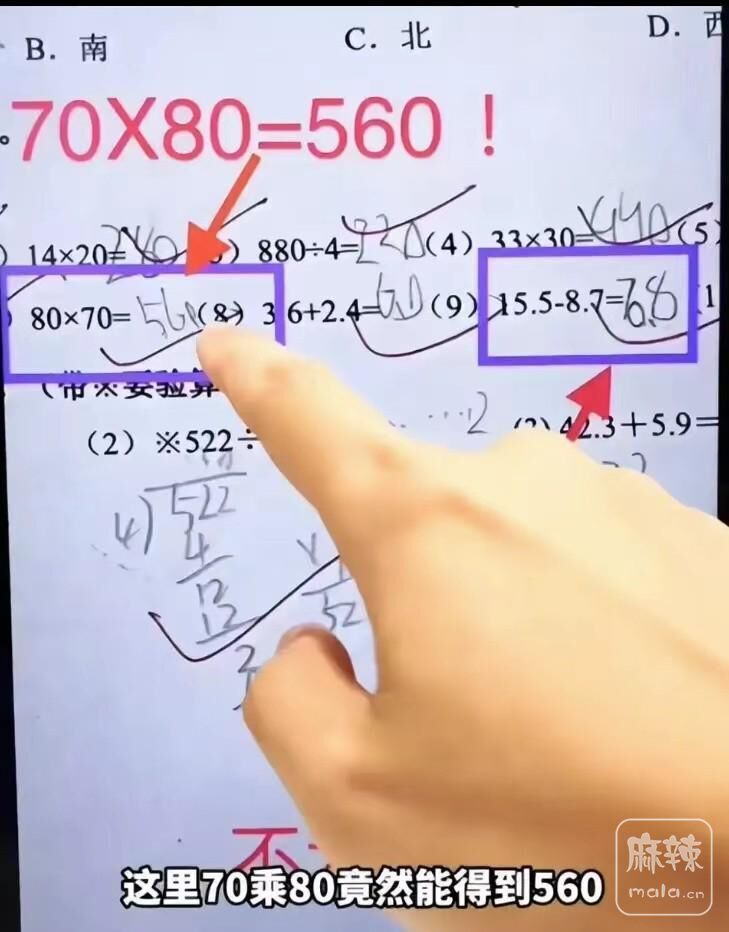 B. 南 C. 北 D. 西
70X80=560！
14×20=280 880÷4=220 (4) 33×30= (5)
80×70=560 (8) 3.6+2.4=6.0 (9) 15.5-8.7=6.8
（带※要验算
（2）※522÷ ……2 42.3＋5.9＝
4 522
4
12
12
2
52
不
这里70乘80竟然能得到560
麻辣
mala.cn